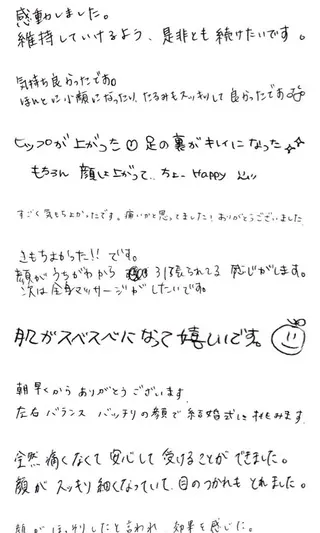 感動しました。
維持していけるよう、是非とも続けたいです。
気持ち良かったです。
ほんとに小顔になったり、たるみもスッキリして良かったです
ヒップが上がった 足の裏がキレイになった
もちろん 顔も上がって、ちょーHappy
すごく気もち上かったです。痛いかと思ってました！ありがとうございました
きもちよかった!!です。
顔が うちがわから 引張られてる 感じがします。
次は全身マッサージがしたいです。
肌がスベスベになって嬉しいです。
朝早くから ありがとうございます
左右バランス バッチリの顔で結婚式に挑みます
全然痛くなくて 安心して 受けることが できました。
顔が スッキリ 細くなっていて、目のつかれも とれました。
顔が ほっそりしたと言われ 効果を感じた。